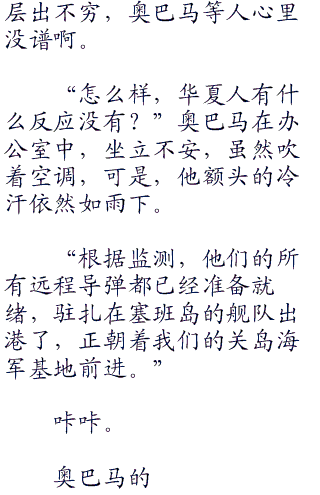 层出不穷，奥巴马等人心里
没谱啊。
“怎么样，华夏人有什
么反应没有？”奥巴马在办
公室中，坐立不安，虽然吹
着空调，可是，他额头的冷
汗依然如雨下。
“根据监测，他们的所
有远程导弹都已经准备就
绪，驻扎在塞班岛的舰队出
港了，正朝着我们的关岛海
军基地前进。”
咔咔。
奥巴马的